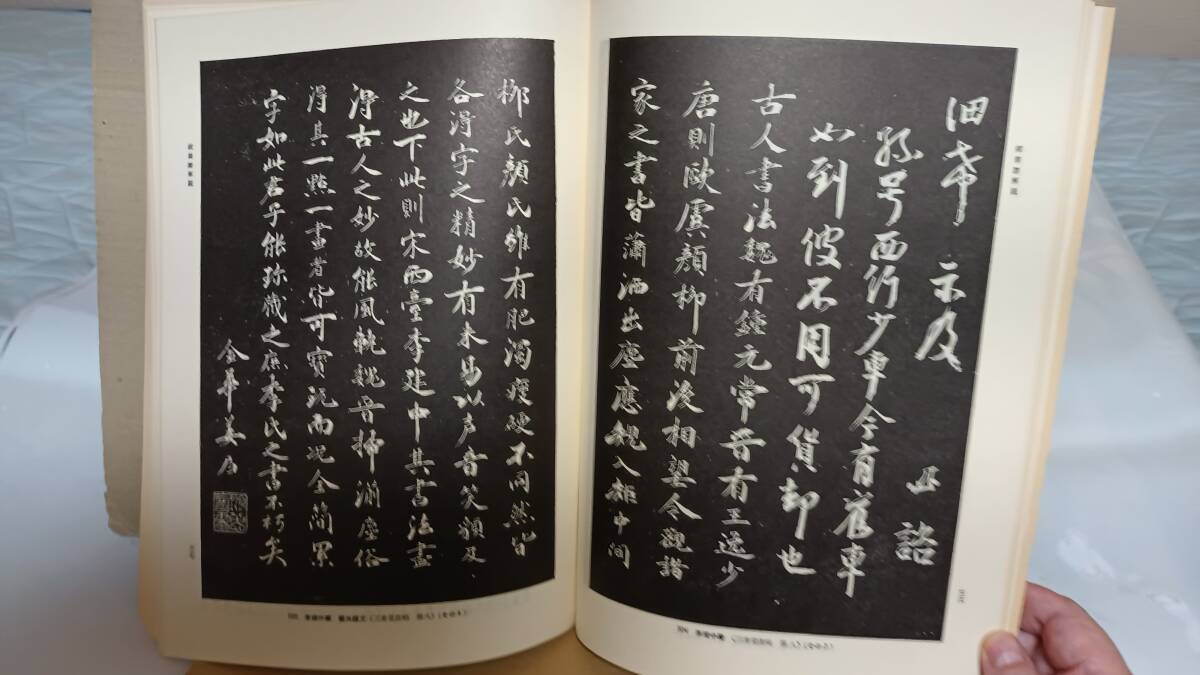 細希 示及 且諮
孫号西行少車今有舊車
如到彼不用可貨却也
古人書法魏有鍾元常晉有王逸少
唐則歐虞顔柳前後相望今觀諸
家之書皆蕭洒出塵應規入矩中間
柳氏顔氏雖有肥濁瘦硬不同然皆
各得字之精妙有未易以声音笑貌及
之也下此則宋西臺李建中其書法盡
得古人之妙故能風軌魏晉掃滌塵俗
得其一點一畫者皆可寶玩而况全簡累
字如此君乎能珍藏之庶李氏之書不朽矣
金華姜